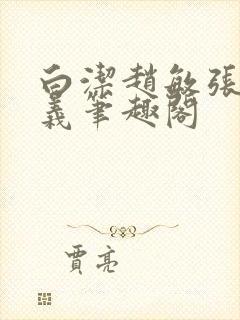 白潔趙敏張
義筆趣閣
賈亮